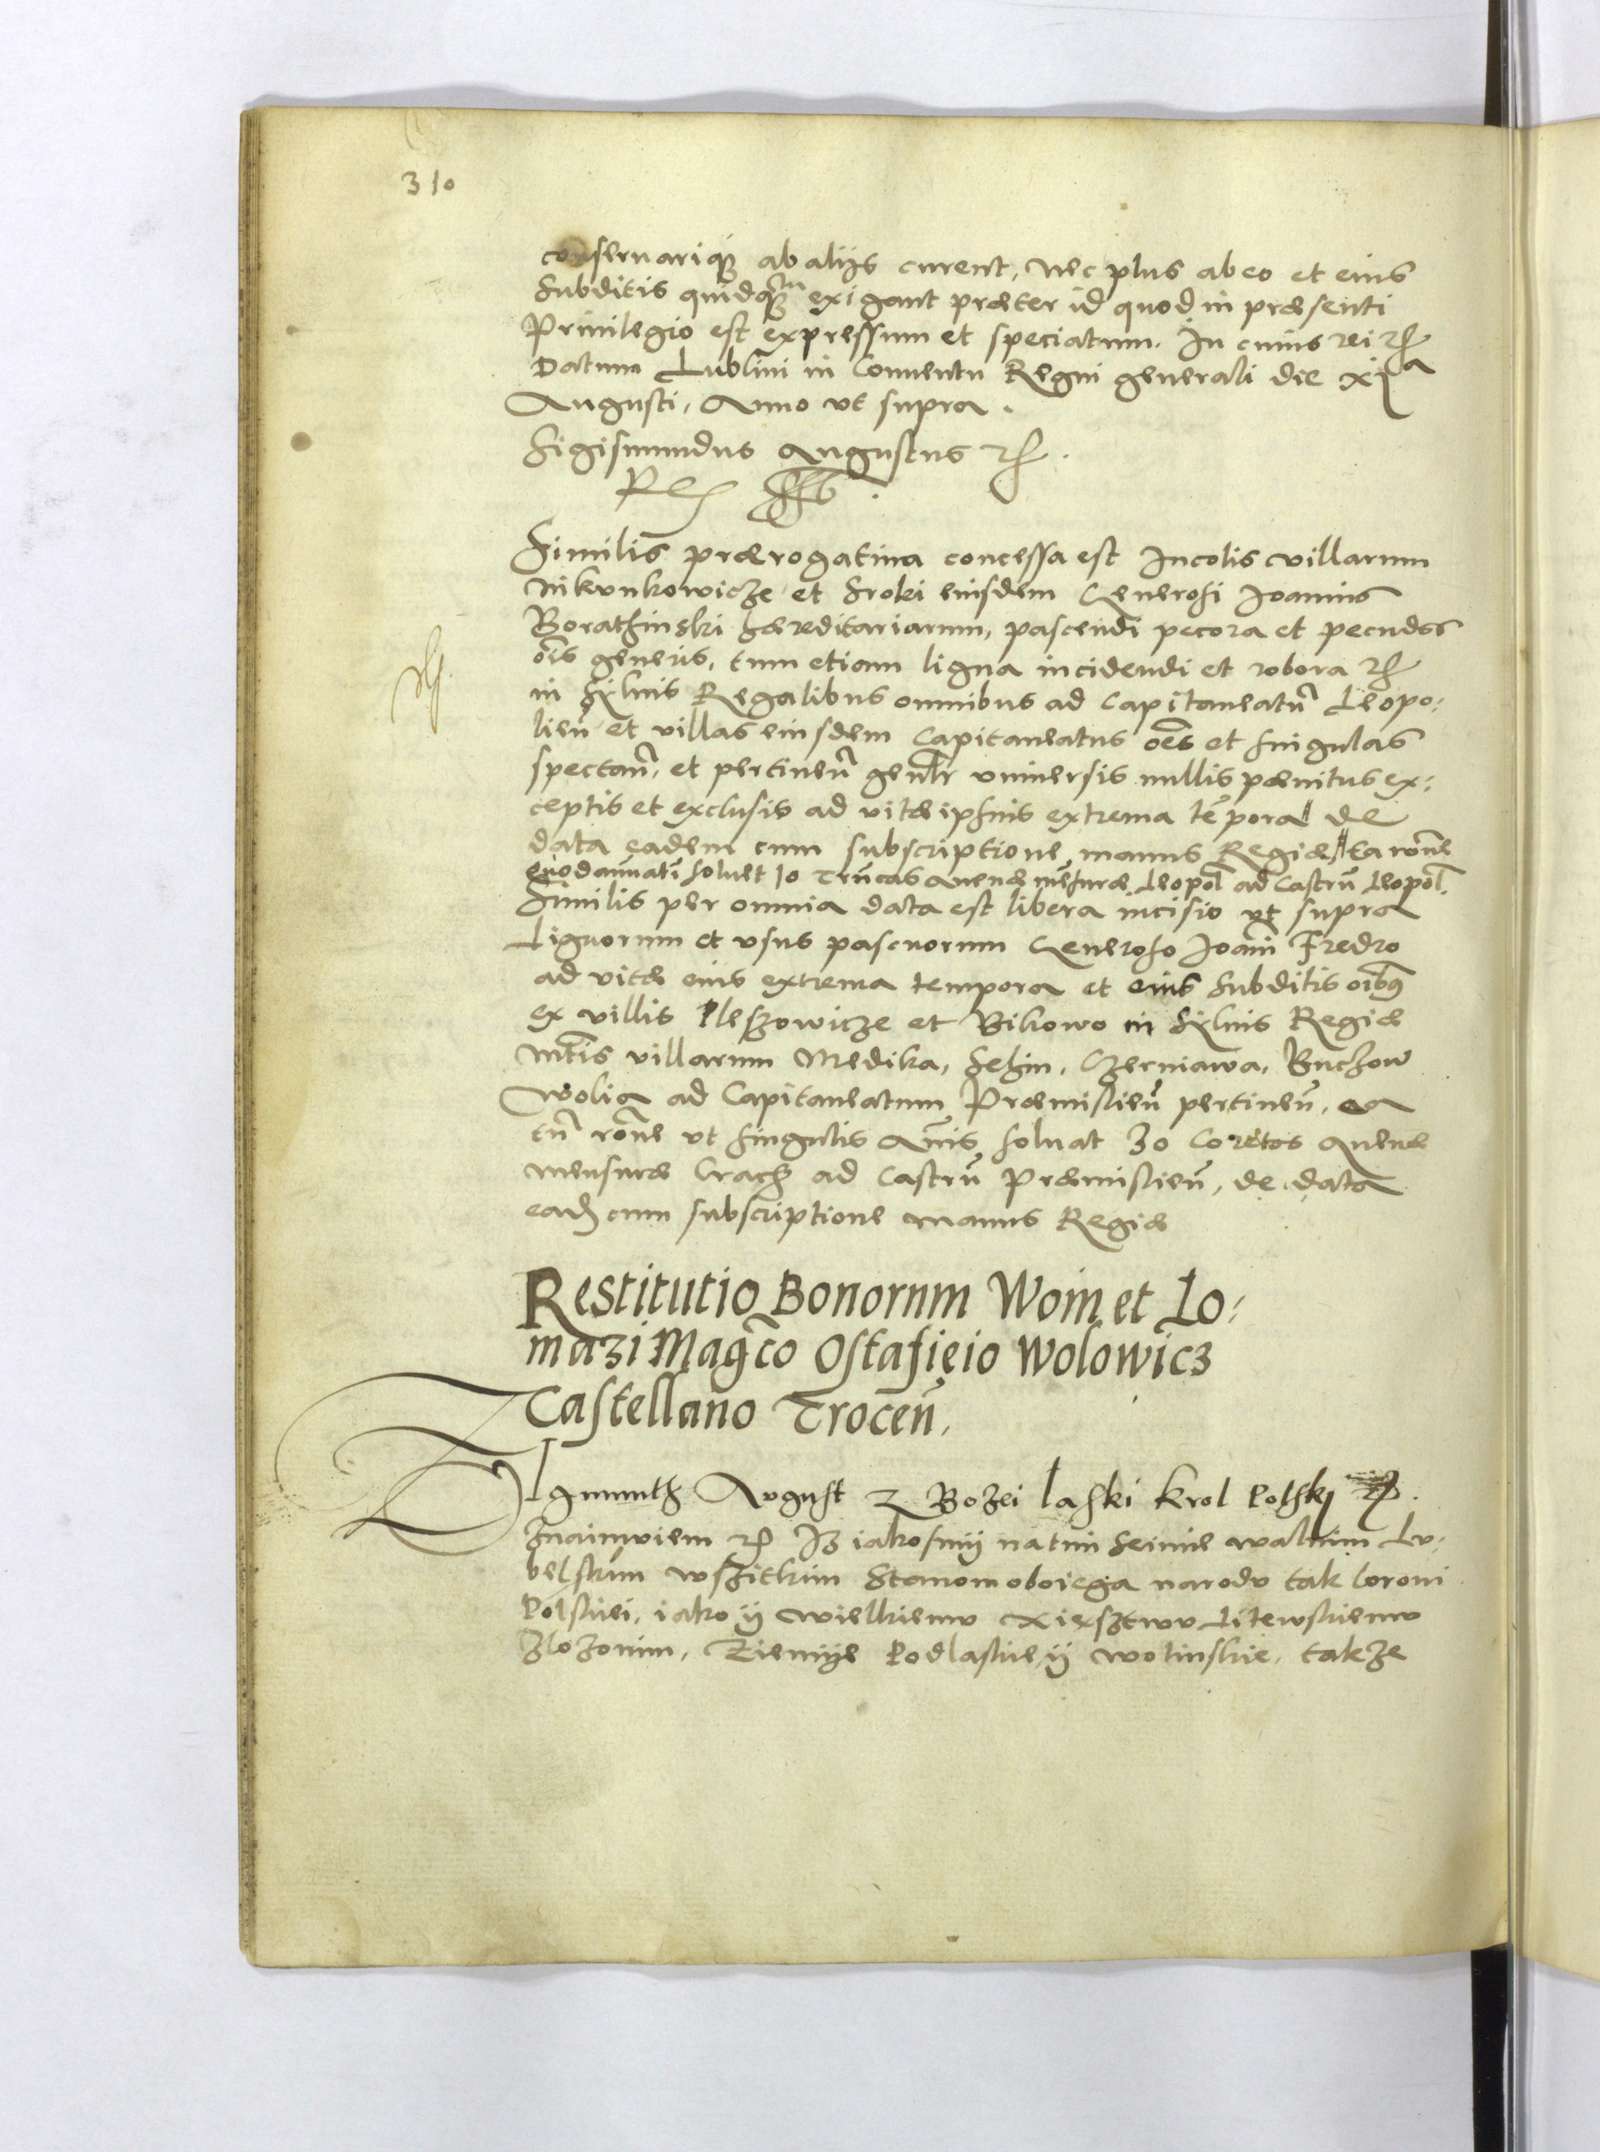 310
conseruariq₃ ab alijs curent, nec plus ab eo et eius
Subditis quidq̃ exigant præter id quod in præsenti
Priuilegio est expressum et speciatum. In cuius rei ꝛc
Datum Lublini in Conuentu Regni generali die xiia
Augusti, Anno vt supra.
Sigismundus Augustus ꝛc.
Rex sst.
Similis prærogatiua concessa est Incolis villarum
Mikunkowicze et Sroki eiusdem Generosi Joannis
Borathinski hæreditariarum, pascendi pecora et pecudes
ōis generis, tum etiam ligna incidendi et robora ꝛc
in syluis Regalibus omnibus ad Capitaneatū Leopo:
lieñ et villas eiusdem Capitaneatus oēs et singulas
spectañ, et pertineñ gen̄lr vniuersis nullis pænitus ex:
ceptis et exclusis ad vitæ ipsius extrema tēpora de
data eadem cum subscriptione manus Regiæ ea rōne
quod annuatī soluet 10 Truncas auenæ mēsuræ Leopol̄ ad Castrū Leopol̄.
Similis per omnia data est libera incisio vt supra
Lignorum et vsus pascuorum Generoso Joan̄i Fredro
ad vitæ eius extrema tempora et eius Subditis oībq₃
ex villis Pleszowicze et Bikowo in syluis Regiæ
Mt̄is villarum Medika, Sehin, Czerniawa, Buczow
Wolia ad Capitaneatum Præmislieñ pertineñ, ea
tn̄ rōne vt singulis an̄is soluat 30 Coretos auenæ
mensuræ Crach ad Castrū Præmislieñ, de data
ead₃ cum subscriptione manus Regiæ
Restitutio Bonorum Woin et Lo:
mazi Mag̃co Ostafieio Wolowicz
Castellano Troceñ.
Zigmunth August z Bozei laski krol Polski ꝛc.
Znaimuiem ꝛc Iz iakosmij na tim Seimie walnim Lu:
belskim wszitkim Stanom oboiega narodu tak Coroni
Polskiei, iako ij wielkiemu Xięsztwu Litewskiemu
zlozonim, Ziemije Podlaskie ij wolinskie, takze